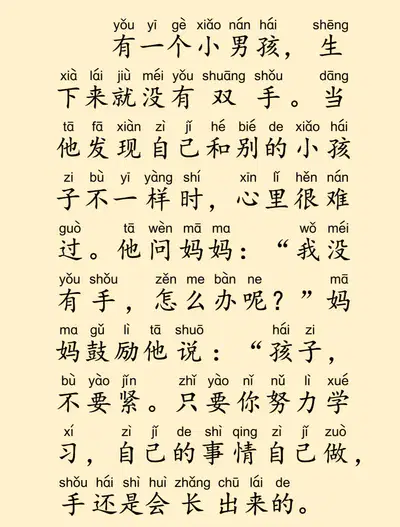 yǒu yī gè xiǎo nán hái shēng
有一个小男孩，生
xià lái jiù méi yǒu shuāng shǒu dāng
下来就没有双手。当
tā fā xiàn zì jǐ hé bié de xiǎo hái
他发现自己和别的小孩
zi bù yī yàng shí xīn lǐ hěn nán
子不一样时，心里很难
guò tā wèn mā ma wǒ méi
过。他问妈妈：“我没
yǒu shǒu zěn me bàn ne mā
有手，怎么办呢？”妈
ma gǔ lì tā shuō hái zi
妈鼓励他说：“孩子，
bù yào jǐn zhǐ yào nǐ nǔ lì xué
不要紧。只要你努力学
xí zì jǐ de shì qing zì jǐ zuò
习，自己的事情自己做，
shǒu hái shì huì zhǎng chū lái de
手还是会长出来的。